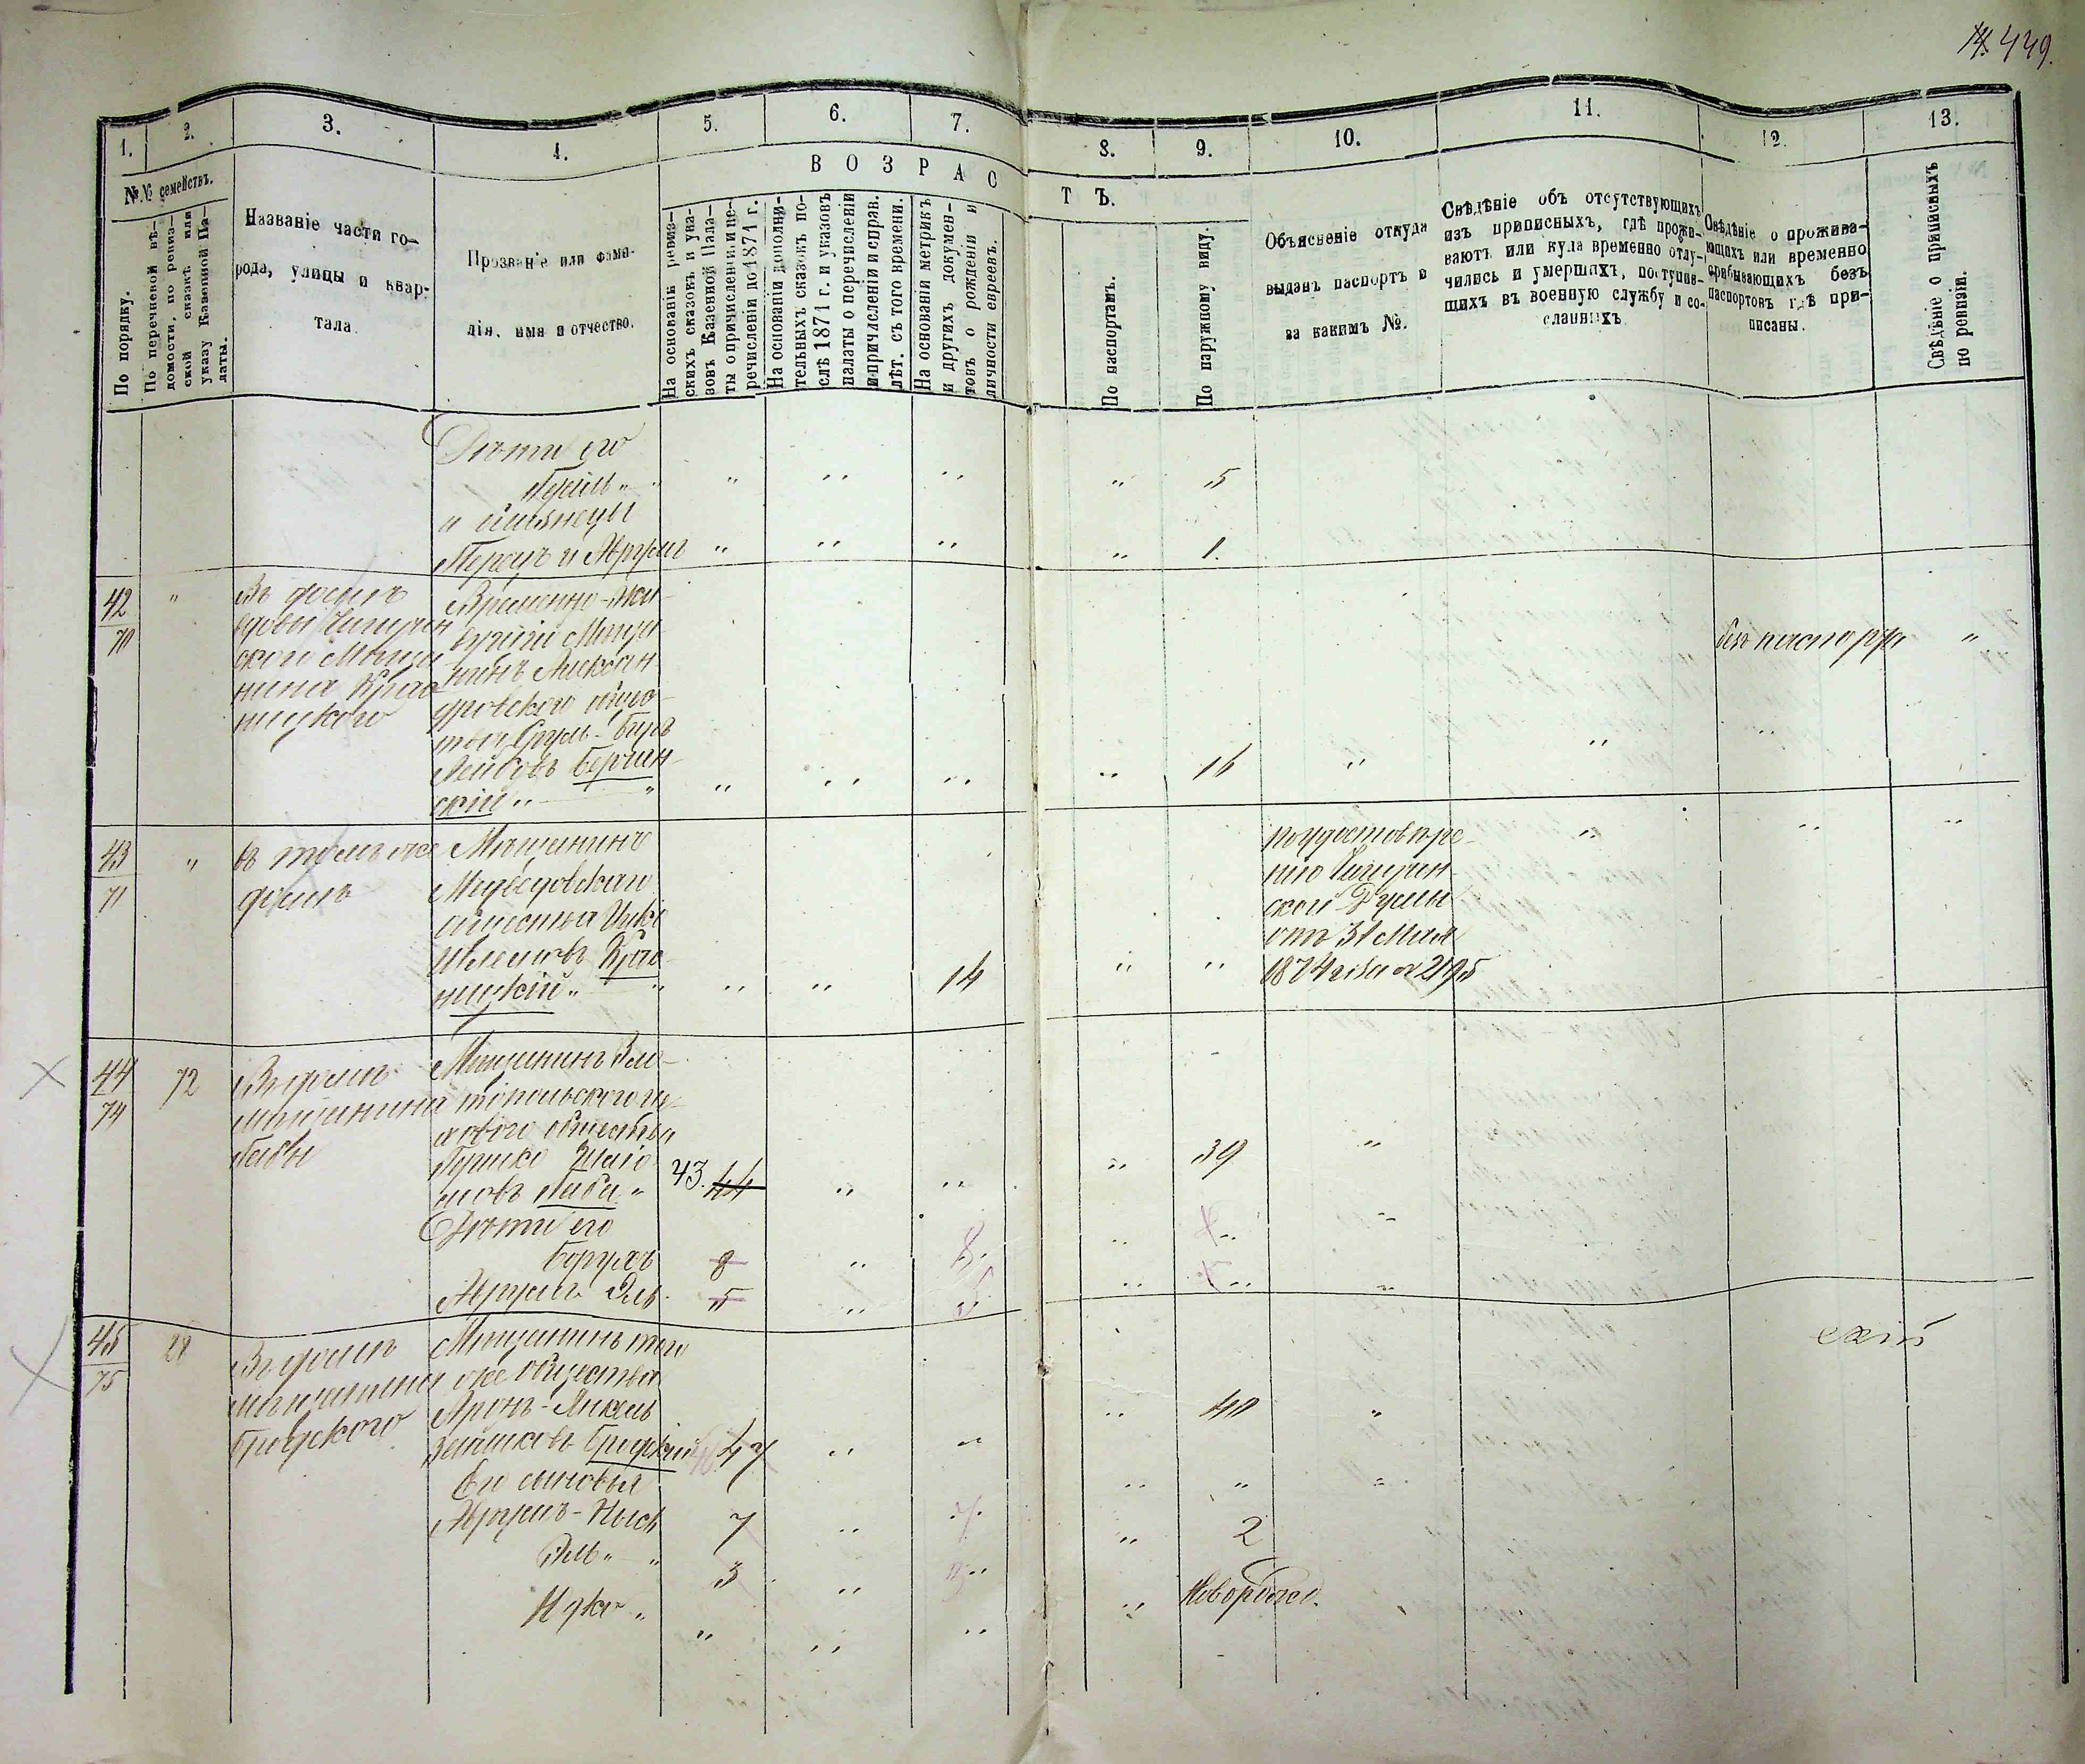 449.
1.
2.
3.
4.
5.
6.
7.
8.
9.
10.
11.
12.
13.
№№ семействъ.
По порядку.
По перечневой вѣ-
домости, по ревиз-
ской сказкѣ или
указу Казенной Па-
латы.
Названіе части го-
рода, улицы и квар-
тала.
Прозваніе или фами-
лія, имя и отчество.
ВОЗРАСТЪ.
На основаніи ревиз-
скихъ сказокъ и ука-
зовъ Казенной Пала-
ты о причисленіи и пе-
речисленіи по 1871 г.
На основаніи дополни-
тельныхъ сказокъ по-
слѣ 1871 г. и указовъ
палаты о перечисленіи
и причисленіи и справ.
лѣт. съ того времени.
На основаніи метрикъ
и другихъ докумен-
товъ о рожденіи и
личности евреевъ.
По паспортамъ.
По наружному виду.
Объясненіе откуда
выданъ паспортъ и
за какимъ №.
Свѣдѣніе объ отсутствующихъ
изъ приписныхъ, гдѣ прожи-
ваютъ или куда временно отлу-
чились и умершихъ, поступив-
щихъ въ военную службу и со-
сланныхъ.
Свѣдѣніе о прожива-
ющихъ или временно
прибывающихъ безъ
паспортовъ гдѣ при-
писаны.
Свѣдѣніе о приписныхъ
по ревизіи.
Дѣти его
" " " " 5
и близнецы
Перецъ и Аврумъ " " " " 1.
42
70
"
Въ домѣ
вдовы Чигирин
ского Мѣща
нина Крас
ницкого
Временно-жи
вущій Мѣща
нинъ Алексан
дровского обще
ства Сруль-Беръ
Лейбовъ Бершин
скій " " " " " 16 " "
без паспорта "
43
71
"
въ томъ же
домѣ
Мѣщанинъ
Медведовскаго
общества Ицко
Шлемовъ Крас
ницкій " " " 14 " "
по удостовѣре
нію Чигирин
ской Думы
отъ 31 Мая
1874 г. за № 2195
" " "
44
74
72
Въ домѣ
мѣщанина
Бабы
Мѣщанинъ Зла
топольского
общества
Гершко
мовъ Баба " 43. 44 " " " 39 "
Дѣти его
Борухъ 8 " 8. " "
Аврумъ Эль 5 " 5 " "
45
75
28
Въ домѣ
мѣщанина
Бродского
Мѣщанинъ того
же общества
Аронъ-Янкель
Зельмковъ Бродскій 47 " " " 40 "
Его сыновья
Аврумъ-Нысь 7 " 7. " "
Эль " " 3 " " " 2
Ицко " " " " " Новорожд.